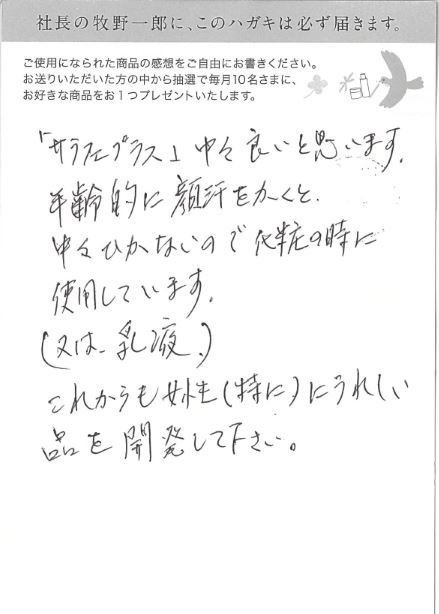 社長の牧野一郎に、このハガキは必ず届きます。
ご使用になられた商品の感想をご自由にお書きください。
お送りいただいた方の中から抽選で毎月10名さまに、
お好きな商品をお1つプレゼントいたします。
「サラフェプラス」中々良いと思います。
年齢的に顔汗をかくと、
中々ひかないので化粧の時に
使用しています。
(又は、乳液。)
これからも女性(特に)にうれしい
品を開発して下さい。